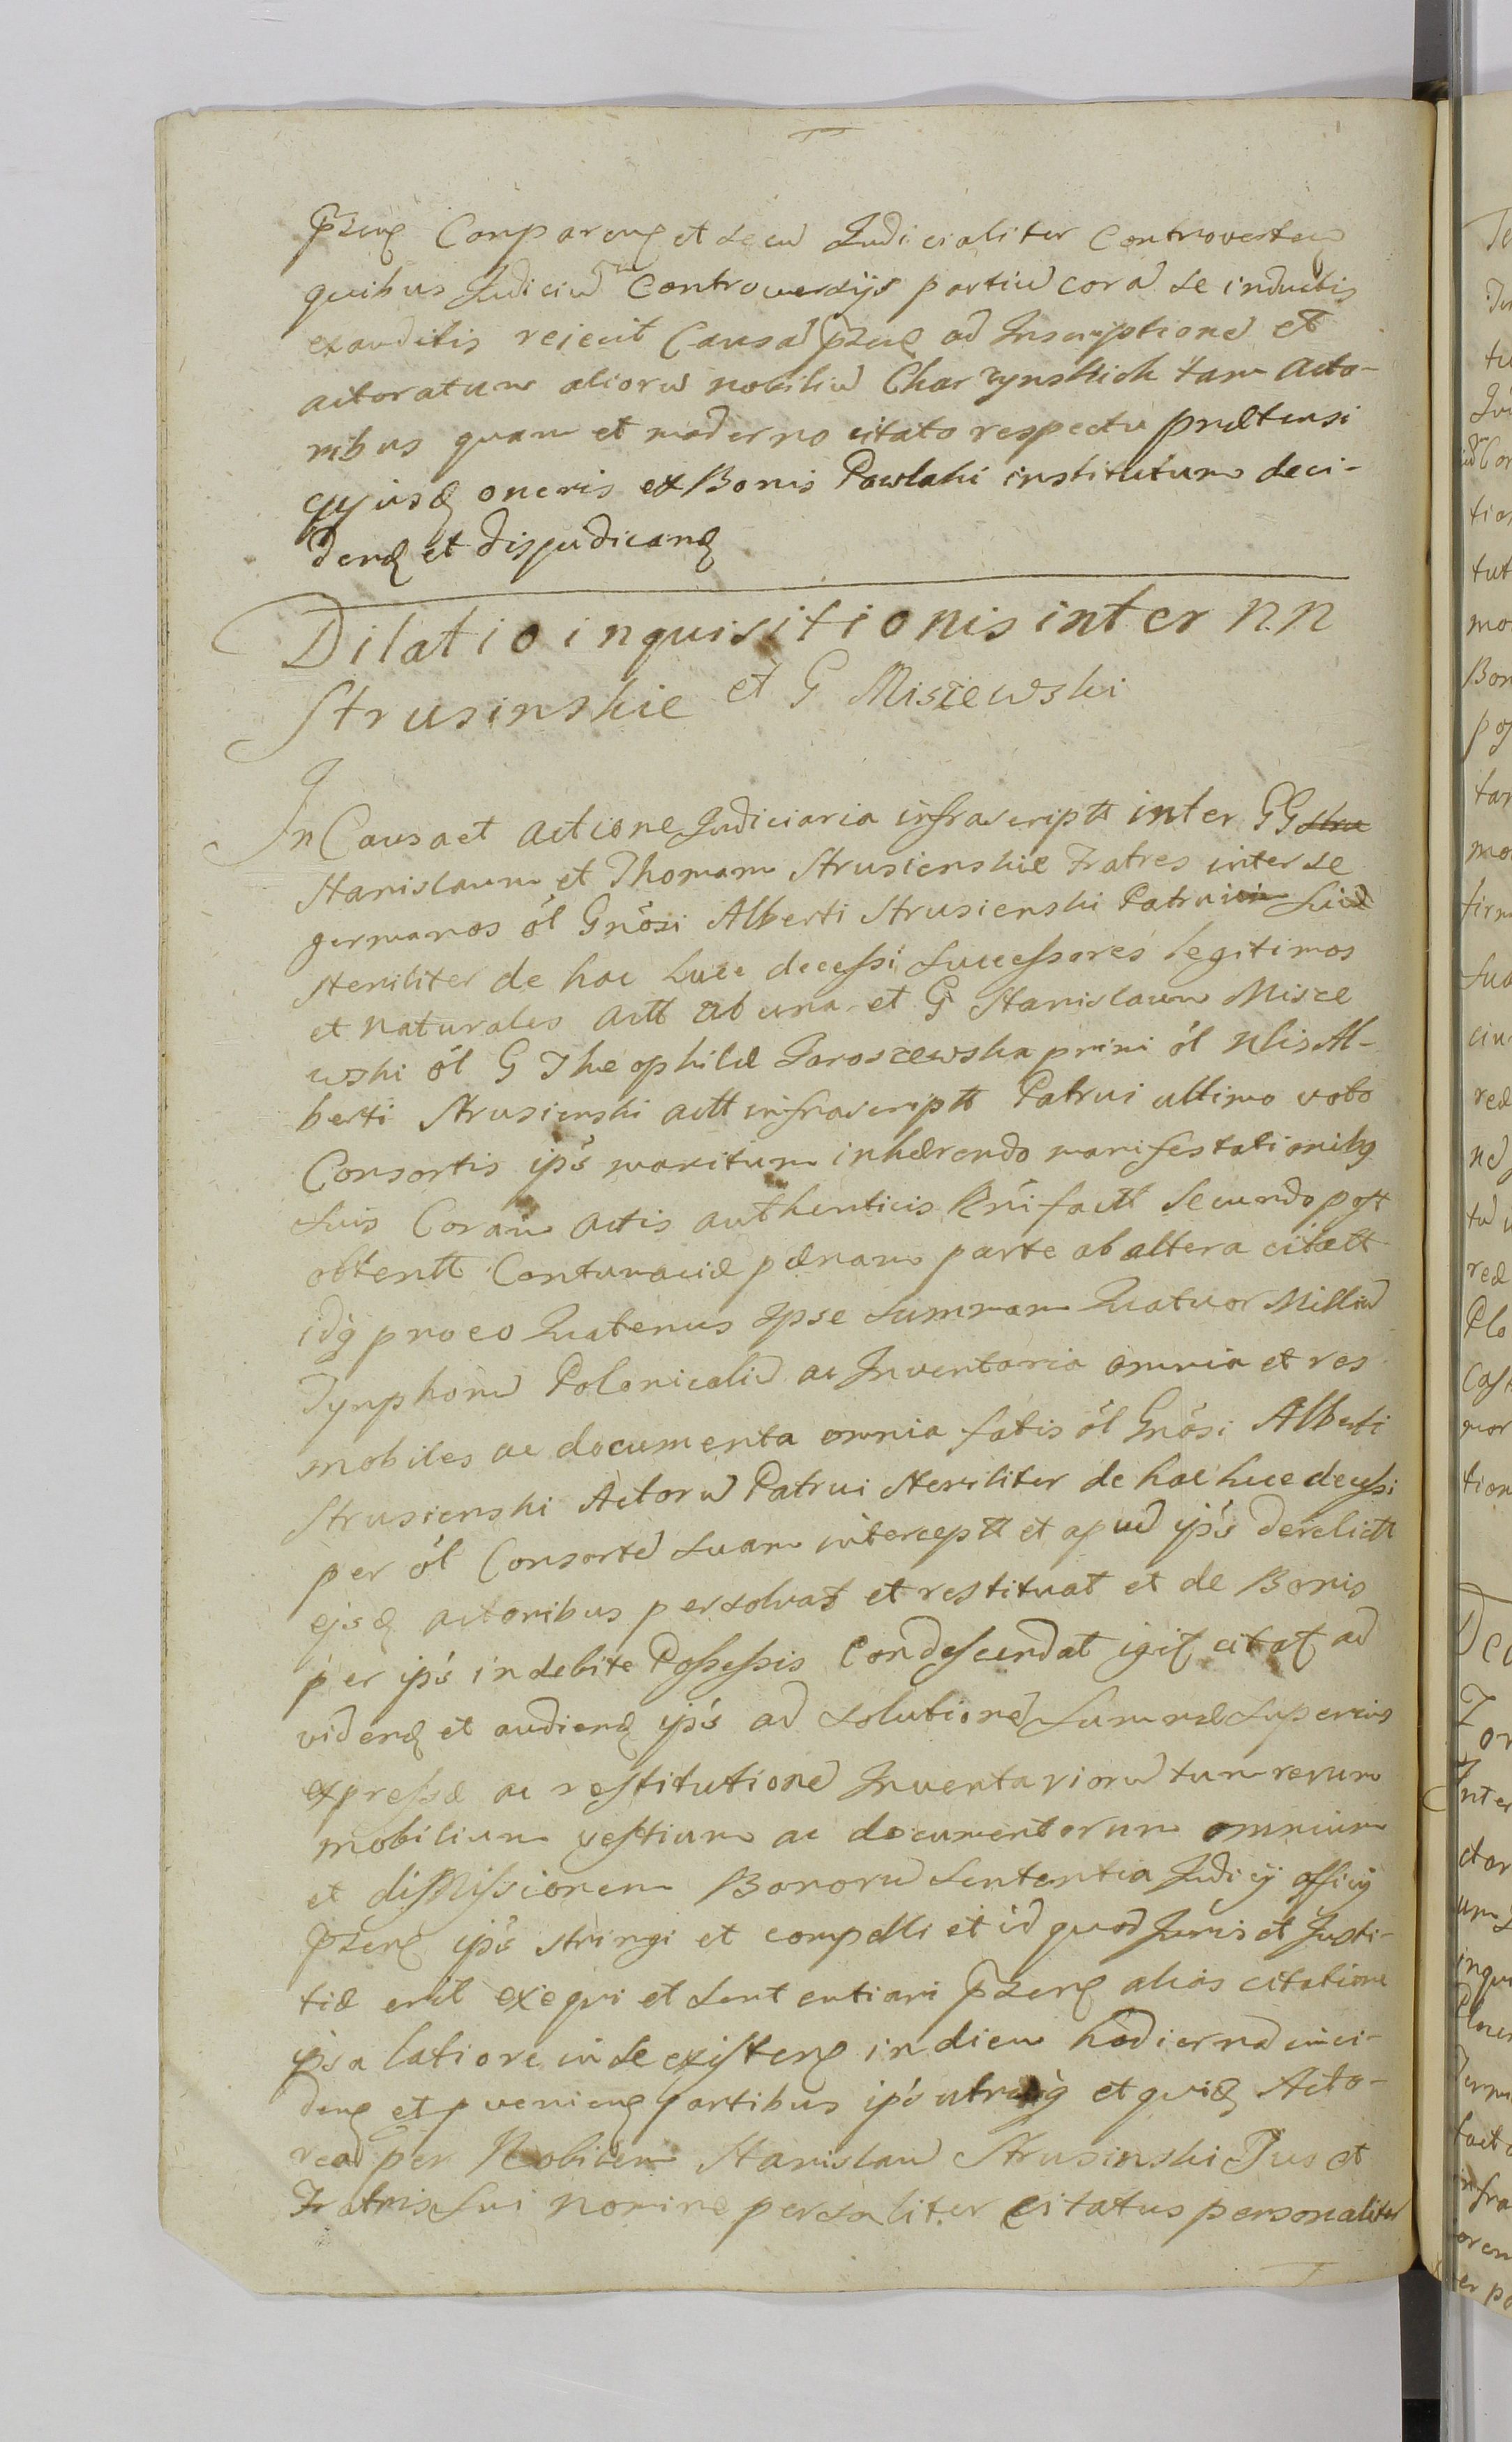 Pzens Comparens et secu Judicialiter Controvertens
quibus Judiciu Controuersijs partiu cora se inductis
exauditis reiecit Causa Pzens ad Inscriptione et
actoratum alioru nobiliu Charzynskich tam acto-
ribus quam et moderno citato respectu prætensi
cujusd oneris ex Bonis Pawlaki institutum deci-
dend et disjudicand
Dilatio inquisitionis inter N.N
Strusinskie et G Miszewski
In Causa et actione Judiciaria infrascriptt inter GG stru
Stanislaum et Thomam Strusienskie Fratres inter se
germanos ol Gnosi Alberti Strusienski Patrui sui
steriliter de hac luce decessi Successores legitimos
et naturales actt ab una et G Stanislaum Misze
wski ol G Theophilæ Jaroszewska primi ol Nlis Al-
berti Strusienski actt infrascriptt Patrui ultimo voto
Consortis ips maritum inhærendo manifestationibq
suis Coram actis authenticis Pnti factt secundo post
obtentt Contumaciæ pænam parte ab altera citatt
idq pro eo Quatenus Ipse summam Quatuor Milliu
Tymphoru Polonicaliu ac Inventaria omnia et res
mobiles ac documenta omnia fatis ol Gnosi Alberti
Strusienski Actoru Patrui steriliter de hac luce decessi
per ol Consorte suam interceptt et apud ips derelictt
ejsd actoribus persolvat et restituat et de Bonis
per ips indebite Possessis Condescendat igit citat ad
vidend et audiend ips ad solutione Summæ superius
expressæ ac restitutione Inventarioru tum rerum
mobilium vestium ac documentorum omnium
et dissmissionem Bonoru sententia Judicij officij
Pzens ips stringi et compelli et id quod Juris et Justi-
tiæ erit exequi et sententiari Pzens alias citatione
ipsa latiore in se existens in diem hodierna inci-
dens et pveniens partibus ips utrisq et quid Acto-
rea per Nobilem Stanislau Strusinski suo et
Fratris sui nomine personaliter citatus personaliter